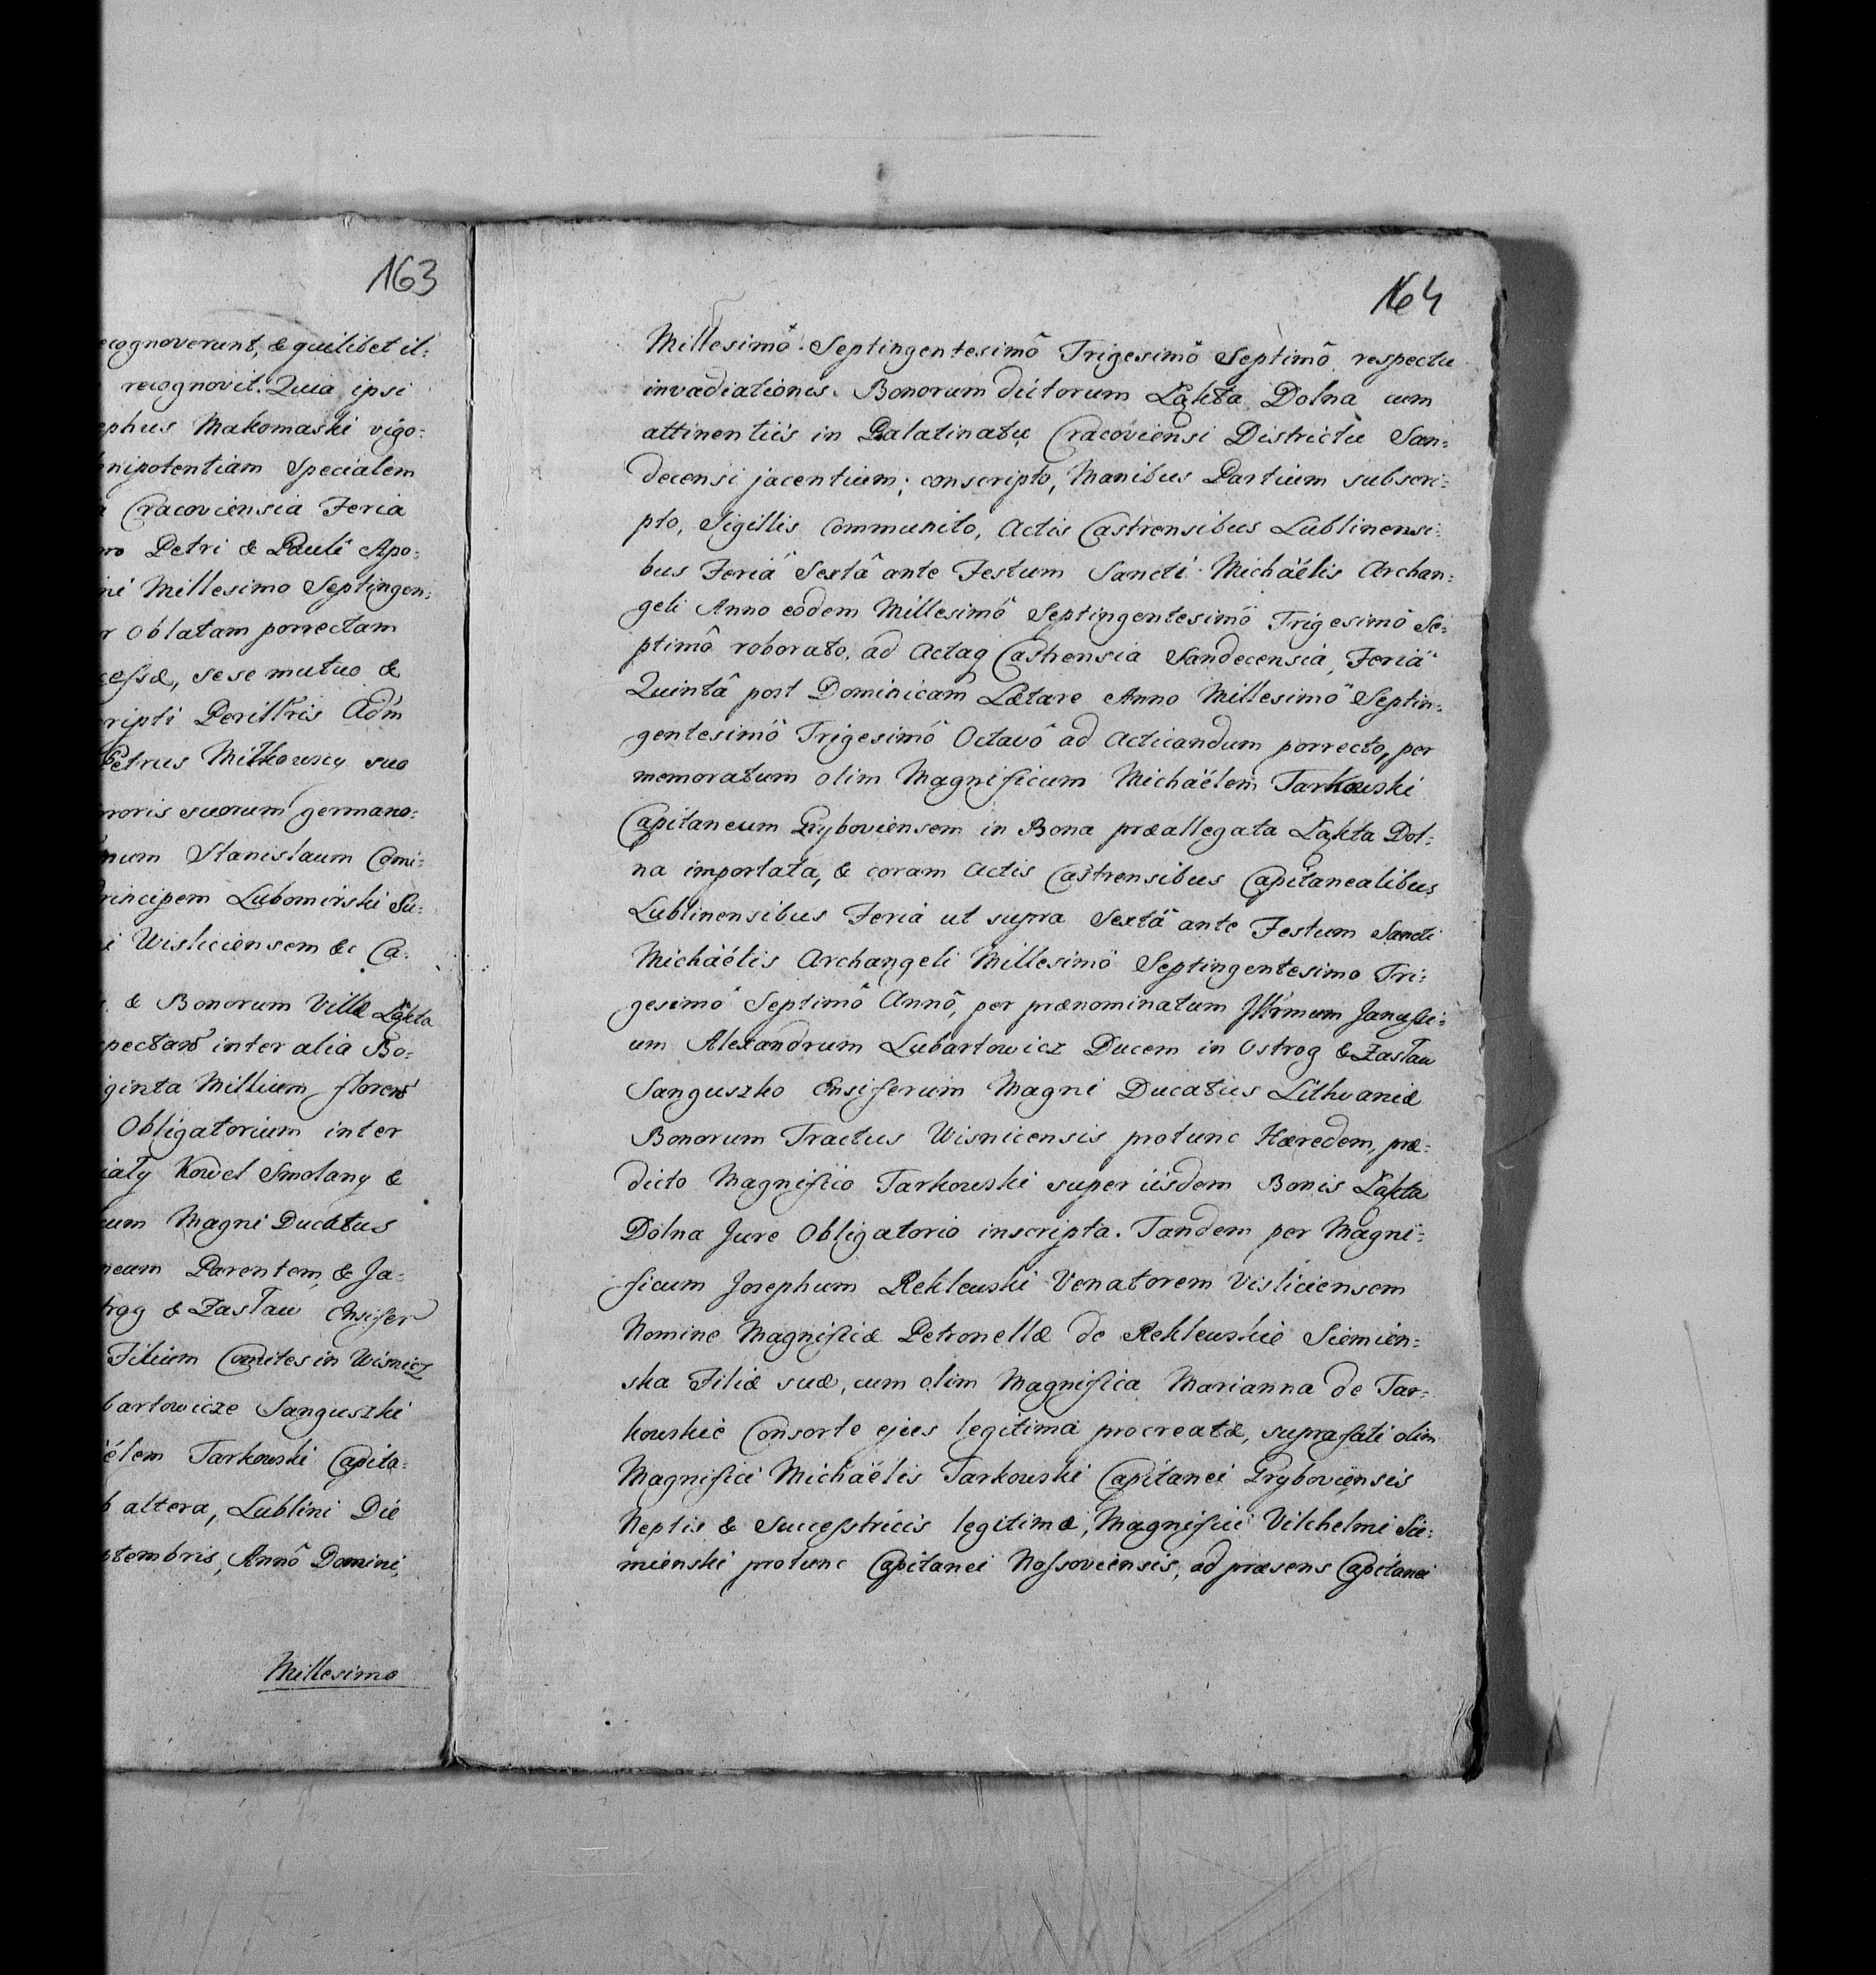 163
ecognoverunt, & quilibet il:
recognovit. Quia ipsi
ephus Makomaski vigo:
nipotentiam Specialem
a Cracoviensia Feria
ro Petri & Pauli Apo:
ni Millesimo Septingen:
r Oblatam porrectam
cessæ, sese mutuo &
cripti Perillris Adm
Petrus Mitkowicy suo
moris suorum germano:
mum Stanislaum Comi:
Principem Lubomirski Su:
i Wisliciensem & Ca:
& Bonorum Villæ Łąkta
inter alia Bo:
ginta Millium floren
Obligatorium inter
iaty Kowel Smolany &
um Magni Ducatus
neum Parentem & Ja:
trog & Zasław Ensifer
Filium Comites in Wisnicz
bartowicze Sanguszki
élem Tarkowski Capita:
b altera, Lublini Die
ptembris, Annô Domini,
Millesimo
164
Millesimô Septingentesimô Trigesimô Septimô respectu
invadiationis Bonorum dictorum Łąkta Dolna cum
attinentiis in Palatinatu Cracoviensi Districtu San:
decensi jacentium; conscripto, Manibus Partium subscri:
pto, Sigillis Communito, Actis Castrensibus Lublinensi:
bus Feriâ Sextâ ante Festum Sancti Michäélis Archan:
geli Anno eôdem Millesimô Septingentesimô Trigesimô Se:
ptimô roborato, ad Actaq Castrensia Sandecensia, Feriâ
Quintâ post Dominicam Lætare Anno Millesimô Septin:
gentesimô Trigesimô Octavô ad Acticandum porrecto, per
memoratum olim Magnificum Michäélem Tarkowski
Capitaneum Gryboviensem in Bona præallegata Łąkta Dol:
na importata, & coram Actis Castrensibus Capitanealibus
Lublinensibus Feriâ ut supra Sextâ ante Festum Sancti
Michäélis Archangeli Millesimô Septingentesimo Tri:
gesimô Septimô Annô, per prænominatum Jllrmum Janussi:
um Alexandrum Lubartowicz Ducem in Ostrog & Zasław
Sanguszko Ensiferum Magni Ducatus Lithvaniæ
Bonorum Tractus Wisnicensis protunc Hæredem, præ:
dicto Magnifico Tarkowski super iisdem Bonis Łąkta
Dolna Jure Obligatorio inscripta. Tandem per Magni:
ficum Josephum Reklewski Venatorem Visliciensem
Nomine Magnificæ Petronellæ de Reklewskie Siemien:
ska Filiæ suæ, cum olim Magnifica Marianna de Tar:
kowskie Consorte ejus legitima procreatæ, suprafati olim
Magnifici Michäélis Tarkowski Capitanei Gryboviensis
Neptis & Successtricis legitimæ, Magnifici Vilhelmi Sie:
mienski protunc Capitanei Nossoviensis, ad præsens Capitanei